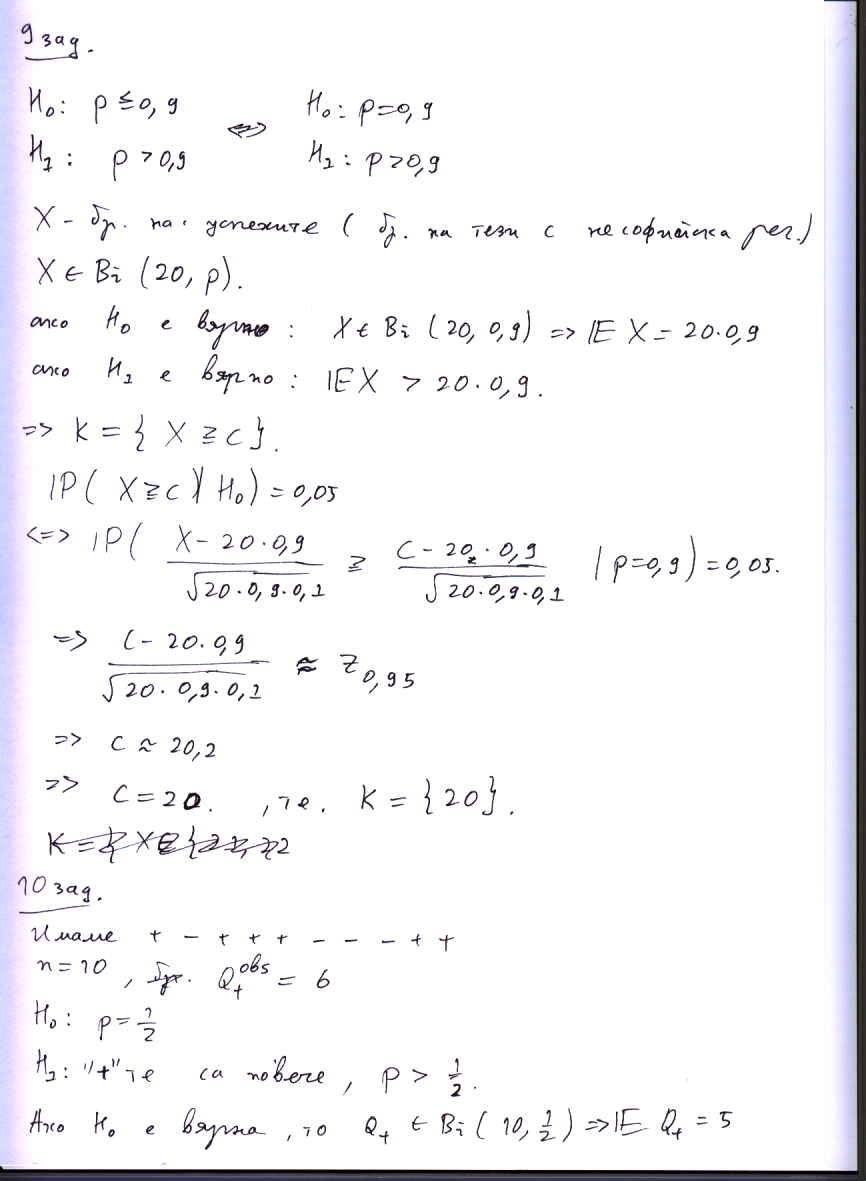 9 зад.
H₀: p ≤ 0,9 <=> H₀: p=0,9
H₁: p > 0,9 H₁: p>0,9
X - бр. на успехите ( бр. на тези с несофийска рег.)
X ∈ Bi (20, p).
ако H₀ е вярно : X ∈ Bi (20, 0,9) => IE X = 20·0,9
ако H₁ е вярно : IEX > 20·0,9.
=> K = { X ≥ c }.
IP( X≥c | H₀) = 0,05
<=> IP( (X - 20·0,9)/√(20·0,9·0,1) ≥ (c - 20·0,9)/√(20·0,9·0,1) | p=0,9 ) = 0,05.
=> (c - 20·0,9)/√(20·0,9·0,1) ≈ z₀,₉₅
=> c ≈ 20,2
=> c = 20. , т.е. K = {20}.
10 зад.
Имаме + - + + + - - - + +
n = 10 , бр. Q₊ᵒᵇˢ = 6
H₀: p = 1/2
H₁: "+"те са повече , p > 1/2.
Ако H₀ е вярна , то Q₊ ∈ Bi ( 10, 1/2 ) => IE Q₊ = 5